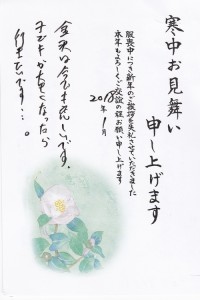 寒中お見舞い
申し上げます
服喪中につき新年のご挨拶を失礼させていただきました
本年もよろしくご交誼の程お願い申し上げます
2018年1月
金沢は今も
です。
なったら
行きたいです…。